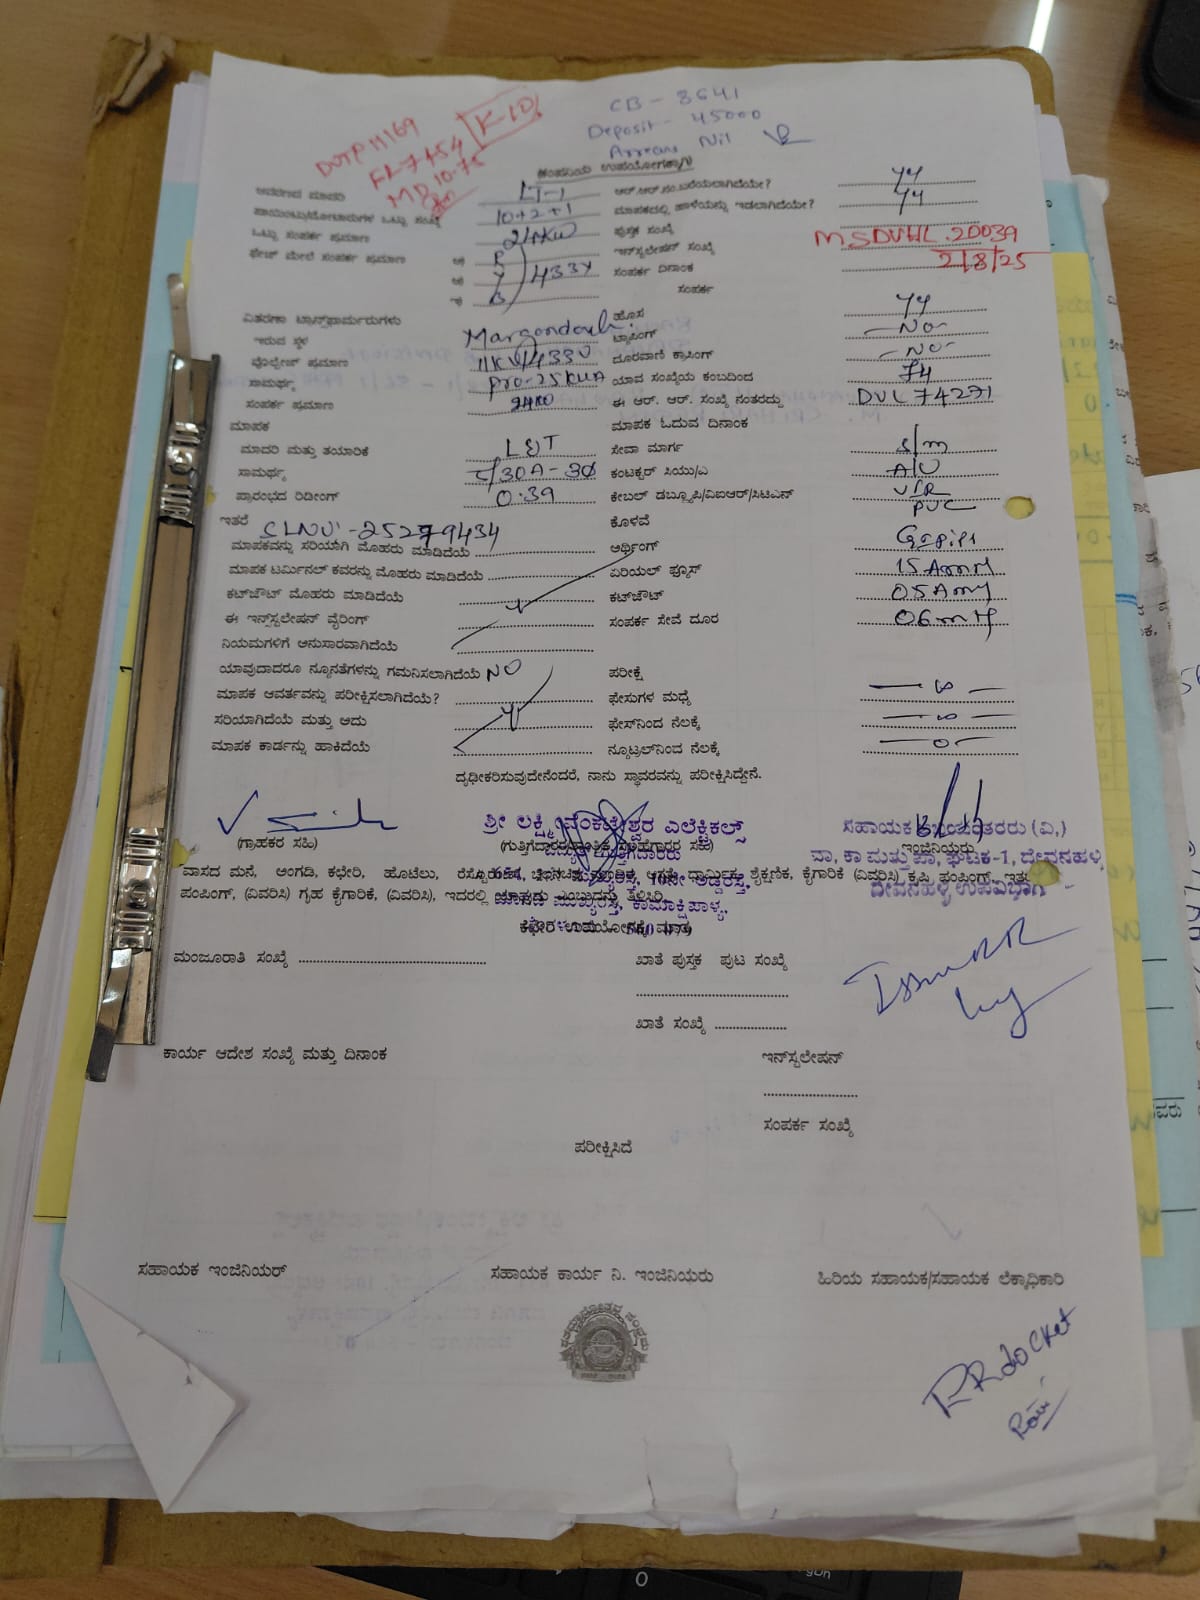 CB - 3641
Deposit - 45000
Arrears Nil
DVTP 11169
FL 7454
K-10
MD 10.75
ಕಂಪನಿಯ ಉಪಯೋಗಕ್ಕಾಗಿ
ಆವರಣದ ಮಾದರಿ LT-1 ಆರ್.ಆರ್.ನಂ.ಬರೆಯಲಾಗಿದೆಯೇ? yy
ಪಾಯಿಂಟು/ಮೋಟಾರುಗಳ ಒಟ್ಟು ಸಂಖ್ಯೆ 10+2+1 ಮಾಪಕದಲ್ಲಿ ಹಾಳೆಯನ್ನು ಇಡಲಾಗಿದೆಯೇ? yy
ಒಟ್ಟು ಸಂಪರ್ಕ ಪ್ರಮಾಣ 24KW ಪುಸ್ತಕ ಸಂಖ್ಯೆ
ಫೇಜ್ ಮೇಲೆ ಸಂಪರ್ಕ ಪ್ರಮಾಣ R ಇನ್‌ಸ್ಟಲೇಷನ್ ಸಂಖ್ಯೆ MSDVHL.20039
Y 433V ಸಂಪರ್ಕ ದಿನಾಂಕ 2/8/25
B ಸಂಪರ್ಕ
ವಿತರಣಾ ಟ್ರಾನ್ಸ್‌ಫಾರ್ಮರುಗಳು ಹೊಸ yy
ಇರುವ ಸ್ಥಳ ಟ್ಯಾಪಿಂಗ್ -No-
ವೋಲ್ಟೇಜ್ ಪ್ರಮಾಣ 11KV/433V ದೂರವಾಣಿ ಕ್ರಾಸಿಂಗ್ -No-
ಸಾಮರ್ಥ್ಯ Pro-25KVA ಯಾವ ಸಂಖ್ಯೆಯ ಕಂಬದಿಂದ 74
ಸಂಪರ್ಕ ಪ್ರಮಾಣ ಈ ಆರ್. ಆರ್. ಸಂಖ್ಯೆ ನಂತರದ್ದು DVL74271
ಮಾಪಕ ಮಾಪಕ ಓದುವ ದಿನಾಂಕ
ಮಾದರಿ ಮತ್ತು ತಯಾರಿಕೆ L&T ಸೇವಾ ಮಾರ್ಗ S/m
ಸಾಮರ್ಥ್ಯ 5/30A-3Ø ಕಂಟಕ್ಟರ್ ಸಿಯು/ಎ A/U
ಪ್ರಾರಂಭದ ರಿಡೀಂಗ್ 0.39 ಕೇಬಲ್ ಡಬ್ಲ್ಯೂಪಿ/ವಿಐಆರ್/ಸಿಟಿಎನ್ VIR
PVC
ಇತರೆ SLNO:-25279434 ಕೊಳವೆ
ಮಾಪಕವನ್ನು ಸರಿಯಾಗಿ ಮೊಹರು ಮಾಡಿದೆಯೆ ಅರ್ಥಿಂಗ್
ಮಾಪಕ ಟರ್ಮಿನಲ್ ಕವರನ್ನು ಮೊಹರು ಮಾಡಿದೆಯೆ ಏರಿಯಲ್ ಫ್ಯೂಸ್ 15 Amp
ಕಟ್‌ಜೌಟ್ ಮೊಹರು ಮಾಡಿದೆಯೆ ಕಟ್‌ಜೌಟ್ 05 Amp
ಈ ಇನ್‌ಸ್ಟಲೇಷನ್ ವೈರಿಂಗ್ ಸಂಪರ್ಕ ಸೇವೆ ದೂರ 06
ನಿಯಮಗಳಿಗೆ ಅನುಸಾರವಾಗಿದೆಯೆ
ಯಾವುದಾದರೂ ನ್ಯೂನತೆಗಳನ್ನು ಗಮನಿಸಲಾಗಿದೆಯೆ NO ಪರೀಕ್ಷೆ
ಮಾಪಕ ಆವರ್ತವನ್ನು ಪರೀಕ್ಷಿಸಲಾಗಿದೆಯೆ? ಫೇಸುಗಳ ಮಧ್ಯೆ
ಸರಿಯಾಗಿದೆಯೆ ಮತ್ತು ಅದು ಫೇಸ್‌ನಿಂದ ನೆಲಕ್ಕೆ
ಮಾಪಕ ಕಾರ್ಡನ್ನು ಹಾಕಿದೆಯೆ ನ್ಯೂಟ್ರಲ್‌ನಿಂದ ನೆಲಕ್ಕೆ
ದೃಢೀಕರಿಸುವುದೇನೆಂದರೆ, ನಾನು ಸ್ಥಾವರವನ್ನು ಪರೀಕ್ಷಿಸಿದ್ದೇನೆ.
ಶ್ರೀ ಲಕ್ಷ್ಮಿ ವೆಂಕಟೇಶ್ವರ ಎಲೆಕ್ಟ್ರಿಕಲ್ಸ್
(ಗ್ರಾಹಕರ ಸಹಿ) ಇಂಜಿನಿಯರು
ವಾ, ಕಾ ಮತ್ತು ಪಾ, ಘಟಕ-1, ದೇವನಹಳ್ಳಿ
ದೇವನಹಳ್ಳಿ ಉಪವಿಭಾಗ
ವಾಸದ ಮನೆ, ಅಂಗಡಿ, ಕಛೇರಿ, ಹೊಟೆಲು, ಧಾರ್ಮಿಕ, ಶೈಕ್ಷಣಿಕ, ಕೈಗಾರಿಕೆ (ವಿವರಿಸಿ) ಕೃಷಿ ಪಂಪಿಂಗ್, ಇತರ
ಪಂಪಿಂಗ್, (ವಿವರಿಸಿ) ಗೃಹ ಕೈಗಾರಿಕೆ, (ವಿವರಿಸಿ), ಇದರಲ್ಲಿ ಯಾವುದು ಎಂಬುದನ್ನು ತಿಳಿಸಿರಿ.
ಕಛೇರಿ ಉಪಯೋಗಕ್ಕೆ ಮಾತ್ರ
ಮಂಜೂರಾತಿ ಸಂಖ್ಯೆ ಖಾತೆ ಪುಸ್ತಕ ಪುಟ ಸಂಖ್ಯೆ
Issue RR
ಖಾತೆ ಸಂಖ್ಯೆ
ಕಾರ್ಯ ಆದೇಶ ಸಂಖ್ಯೆ ಮತ್ತು ದಿನಾಂಕ ಇನ್‌ಸ್ಟಲೇಷನ್
ಸಂಪರ್ಕ ಸಂಖ್ಯೆ
ಪರೀಕ್ಷಿಸಿದೆ
ಸಹಾಯಕ ಇಂಜಿನಿಯರ್ ಸಹಾಯಕ ಕಾರ್ಯ ನಿ. ಇಂಜಿನಿಯರು ಹಿರಿಯ ಸಹಾಯಕ/ಸಹಾಯಕ ಲೆಕ್ಕಾಧಿಕಾರಿ
RR docket